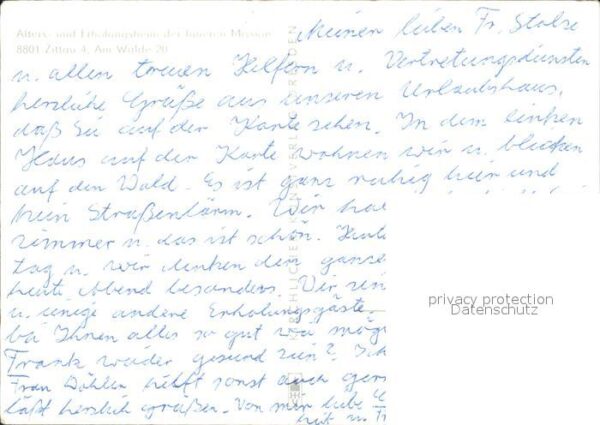 Alters- und Erholungsheim der Inneren Mission
8801 Zittau 4, Am Walde 20
Meinen lieben Fr. Stolze
u. allen treuen Helfern u. Vertretungsdiensten
herzliche Grüße aus unseren Urlaubshaus,
daß Sie auf der Karte sehen. In dem linken
Haus auf der Karte wohnen wir u. blicken
auf den Wald. Es ist ganz ruhig hier und
kein Straßenlärm. Wir ha
zimmer u. das ist schön. Heute
tag u. wir denken dem ganze
heute Abend besonders. Wir sin
u. einige andere Erholungsgäste.
bei Ihnen alles so gut wie mögl
Frank wieder gesund sein? Ich
Frau Döhler hilft sonst auch gern
läßt herzlich grüßen. Von mir liebe G
privacy protection
Datenschutz